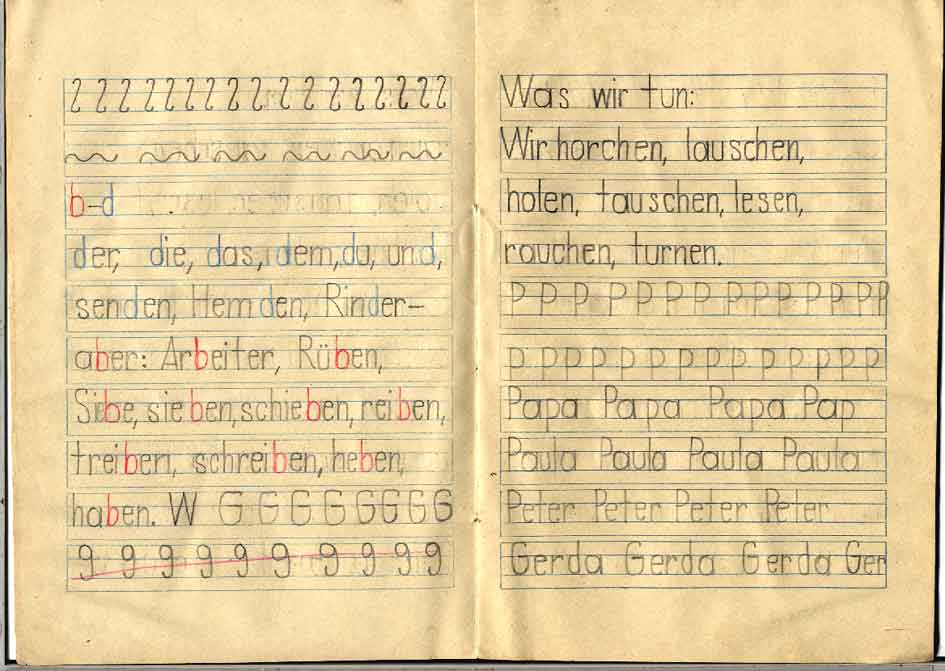 b-d
der, die, das, dem, du, und,
senden, Hemden, Rinder-
aber: Arbeiter, Rüben,
Siebe, sieben, schieben, reiben,
treiben, schreiben, heben,
haben. W G G G G G G G G
g g g g g g g g g g
Was wir tun:
Wir horchen, lauschen,
holen, tauschen, lesen,
rauchen, turnen.
P P P P P P P P P P P P P P P
p p p p p p p p p p p p p p
Papa Papa Papa Pap
Paula Paula Paula Paula
Peter Peter Peter Peter
Gerda Gerda Gerda Ger